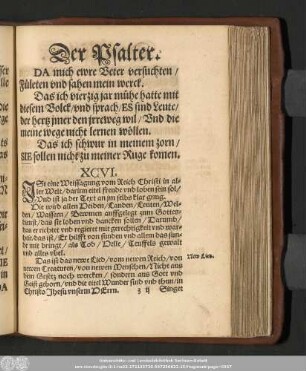 Der Psalter.
DA mich ewre Veter versuchten /
Fületen vnd sahen mein werck.
Das ich vierzig jar mühe hatte mit
diesem Volck / vnd sprach / ES sind Leute /
der hertz jmer den jrreweg wil / Vnd die
meine wege nicht lernen wöllen.
Das ich schwur in meinem zorn /
SIE sollen nicht zu meiner Ruge komen.
XCVI.
ISt eine Weissagung vom Reich Christi in al-
ler Welt / darinn eitel freude vnd loben sein sol /
Vnd ist ja der Text an jm selbs klar gnug.
Die wird allen Heiden / Landen / Leuten / Wel-
den / Wassern / Bewmen auffgelegt zum Gottes-
dienst / das sie loben vnd dancken sollen / Darumb /
das er richtet vnd regieret mit gerechtigkeit vnd war-
heit / das ist / Er hilfft von sünden vnd allem das sün-
de mit bringt / als Tod / Helle / Teuffels gewalt
vnd alles vbel.
Das ist das newe Lied / vom newen Reich / von
New Lied.
newen Creaturen / von newen Menschen / Nicht aus
dem Gesetz noch wercken / sondern aus Gott vnd
Geist geborn / vnd die eitel Wunder sind vnd thun / in
Christo Jhesu vnserm HErrn.
Singet